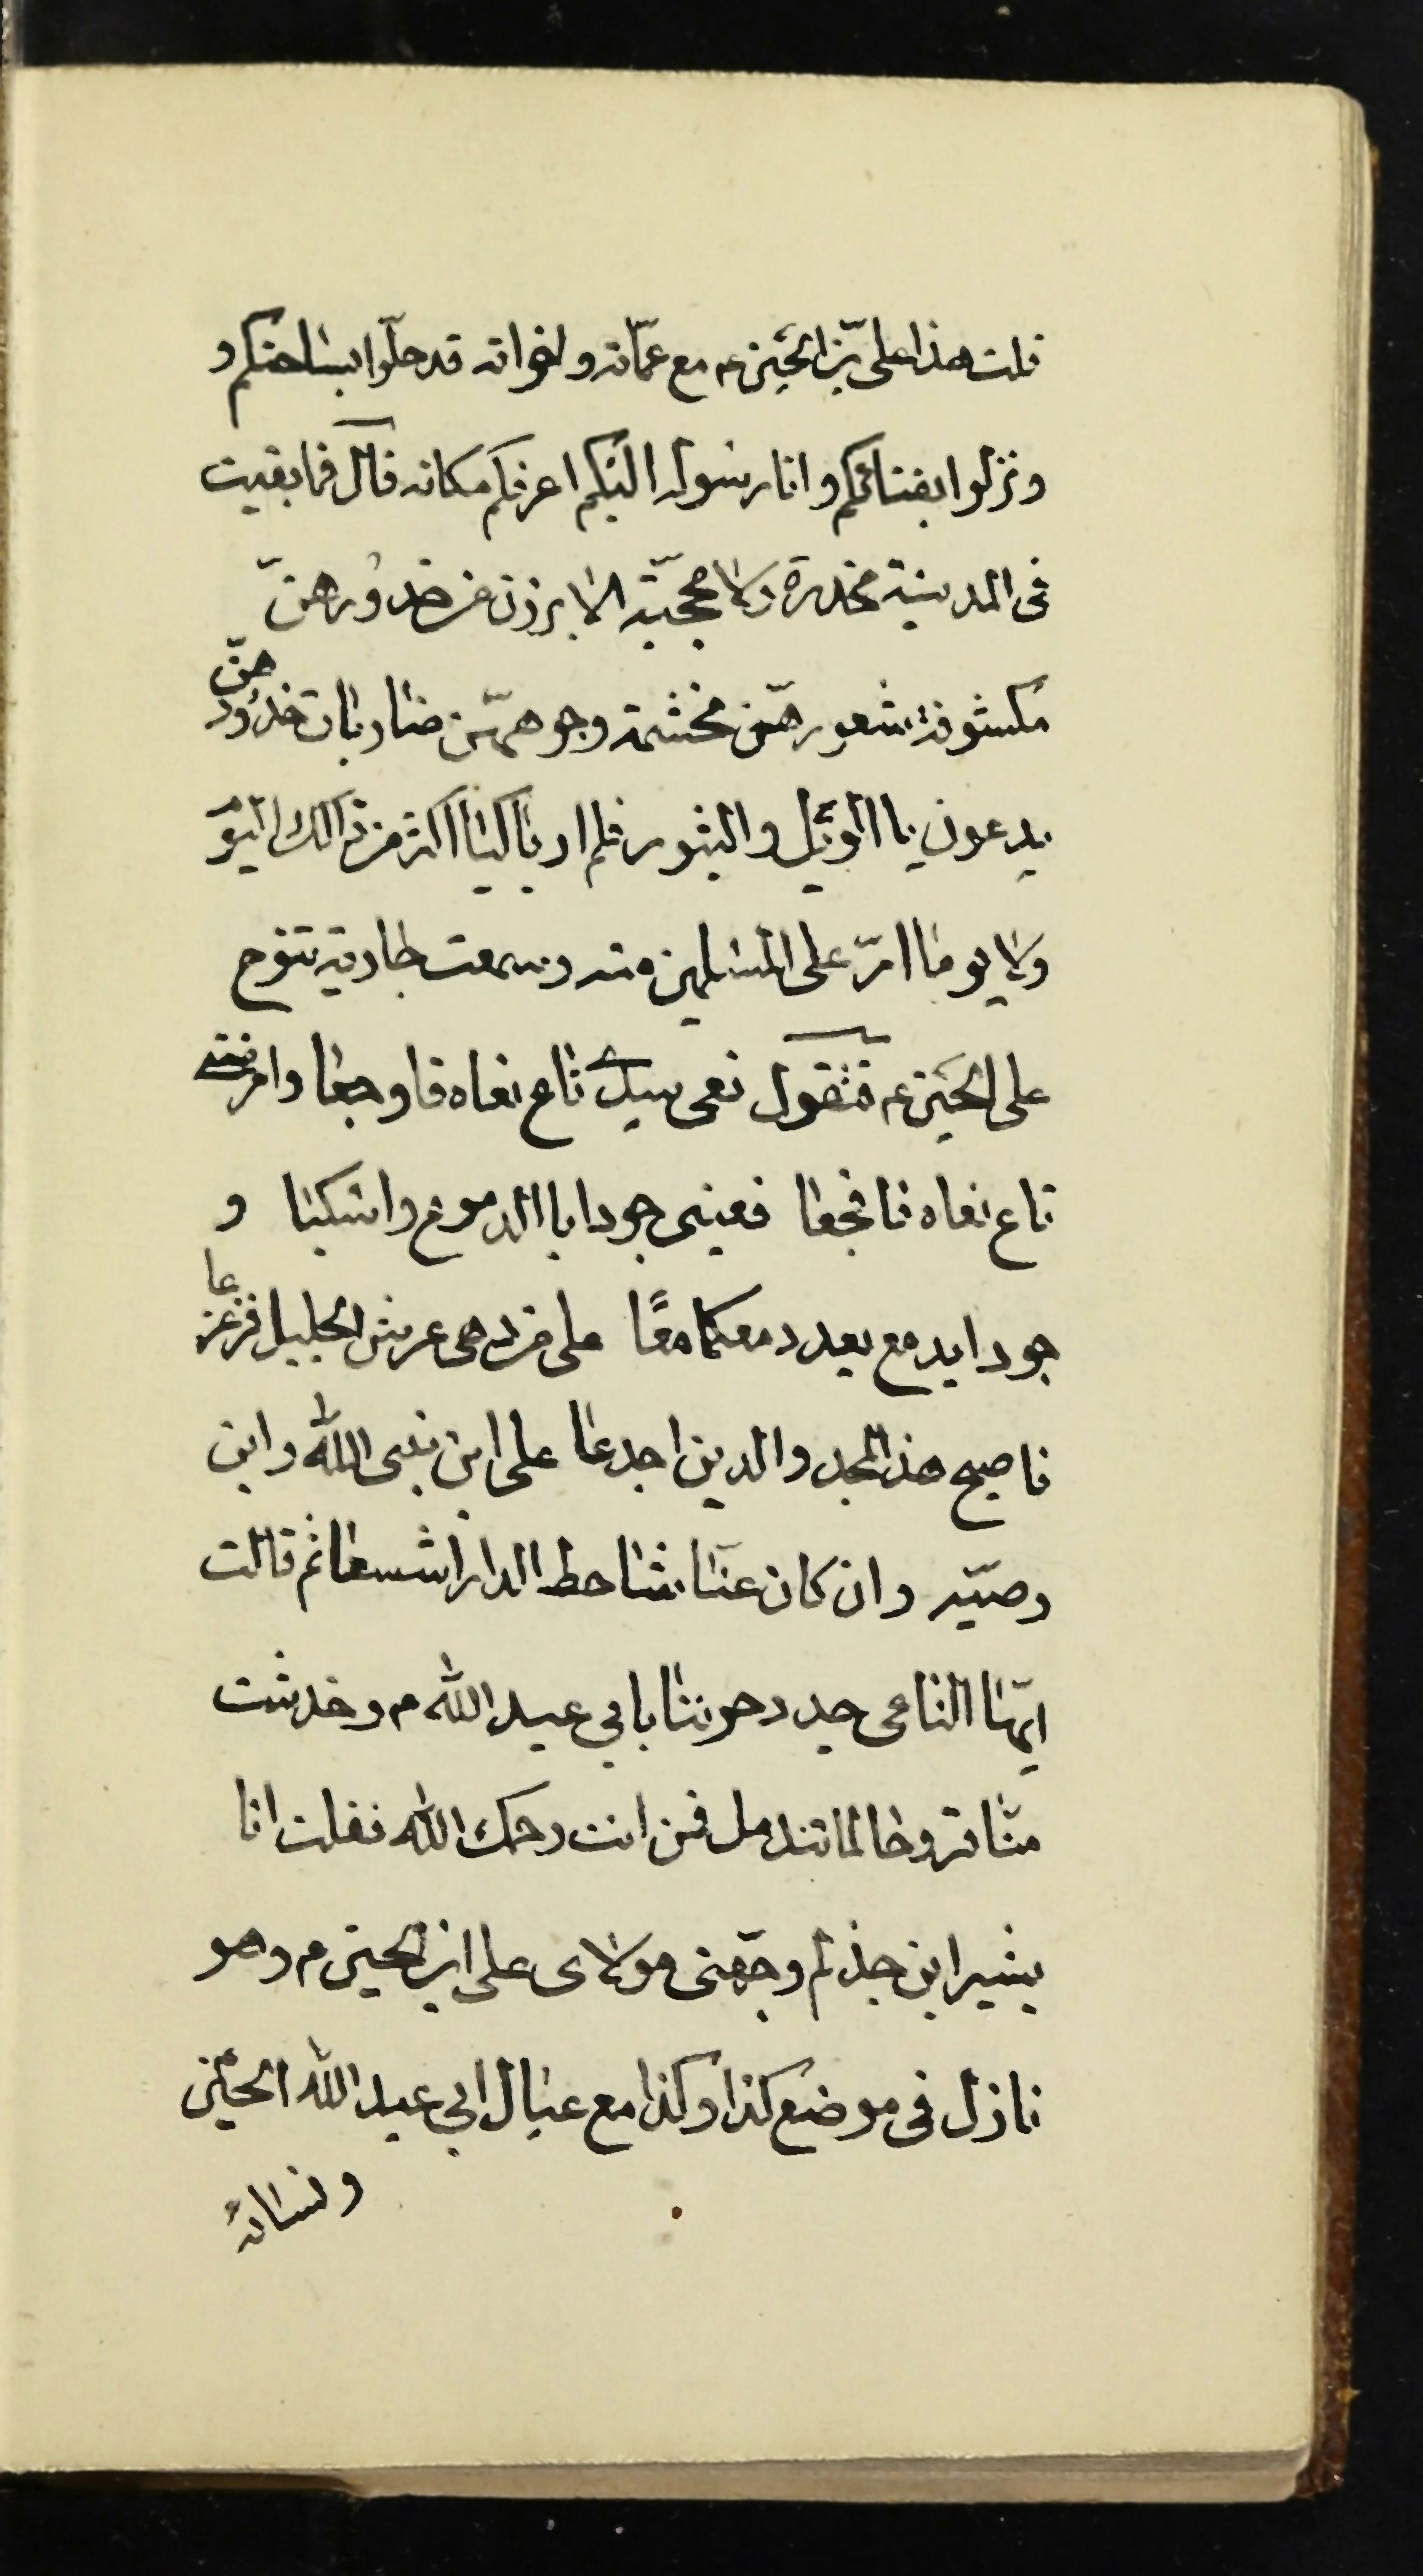 قلت هذا علی بن الحسین ع مع عمّاته و اخواته قد حلّوا بساحتکم و
و نزلوا بفنائکم و انا رسوله الیکم اعرفکم مکانه قال فما بقیت
فی المدینة مخدرة ولا محجّبة الا برزن من خدورهنّ
مکشوفة شعورهنّ مخشمة وجوههنّ ضاربات خدودهنّ
یدعون باالویل والثبور فلم ار باکیا اکثر من ذالک الیوم
ولا یوما امرّ علی المسلمین منه وسمعت جاریة تنوح
علی الحسین ع فتقول نعی سیدی ناع نعاه فاوجعا وامرضنی
ناع نعاه فافجعا فعینی جودا باالدموع واسکبا و
جودا بدمع بعد دمعکما معًا علی من دهی عرش الجلیل فزعزعا
فاصبح هذا المجد والدین اجدعا علی ابن نبی الله وابن
وصیّه وان کان عنّا شاحط الدار اشسعا ثم قالت
ایّها الناعی جدد حزننا بابی عبد الله م وخدشت
منّا قروحا لما تندمل فمن انت رحمک الله فقلت انا
بشیر ابن جذلم وجّهنی مولای علی ابن الحسین م وهو
نازل فی موضع کذا وکذا مع عیال ابی عبد الله الحسین
ونسائه